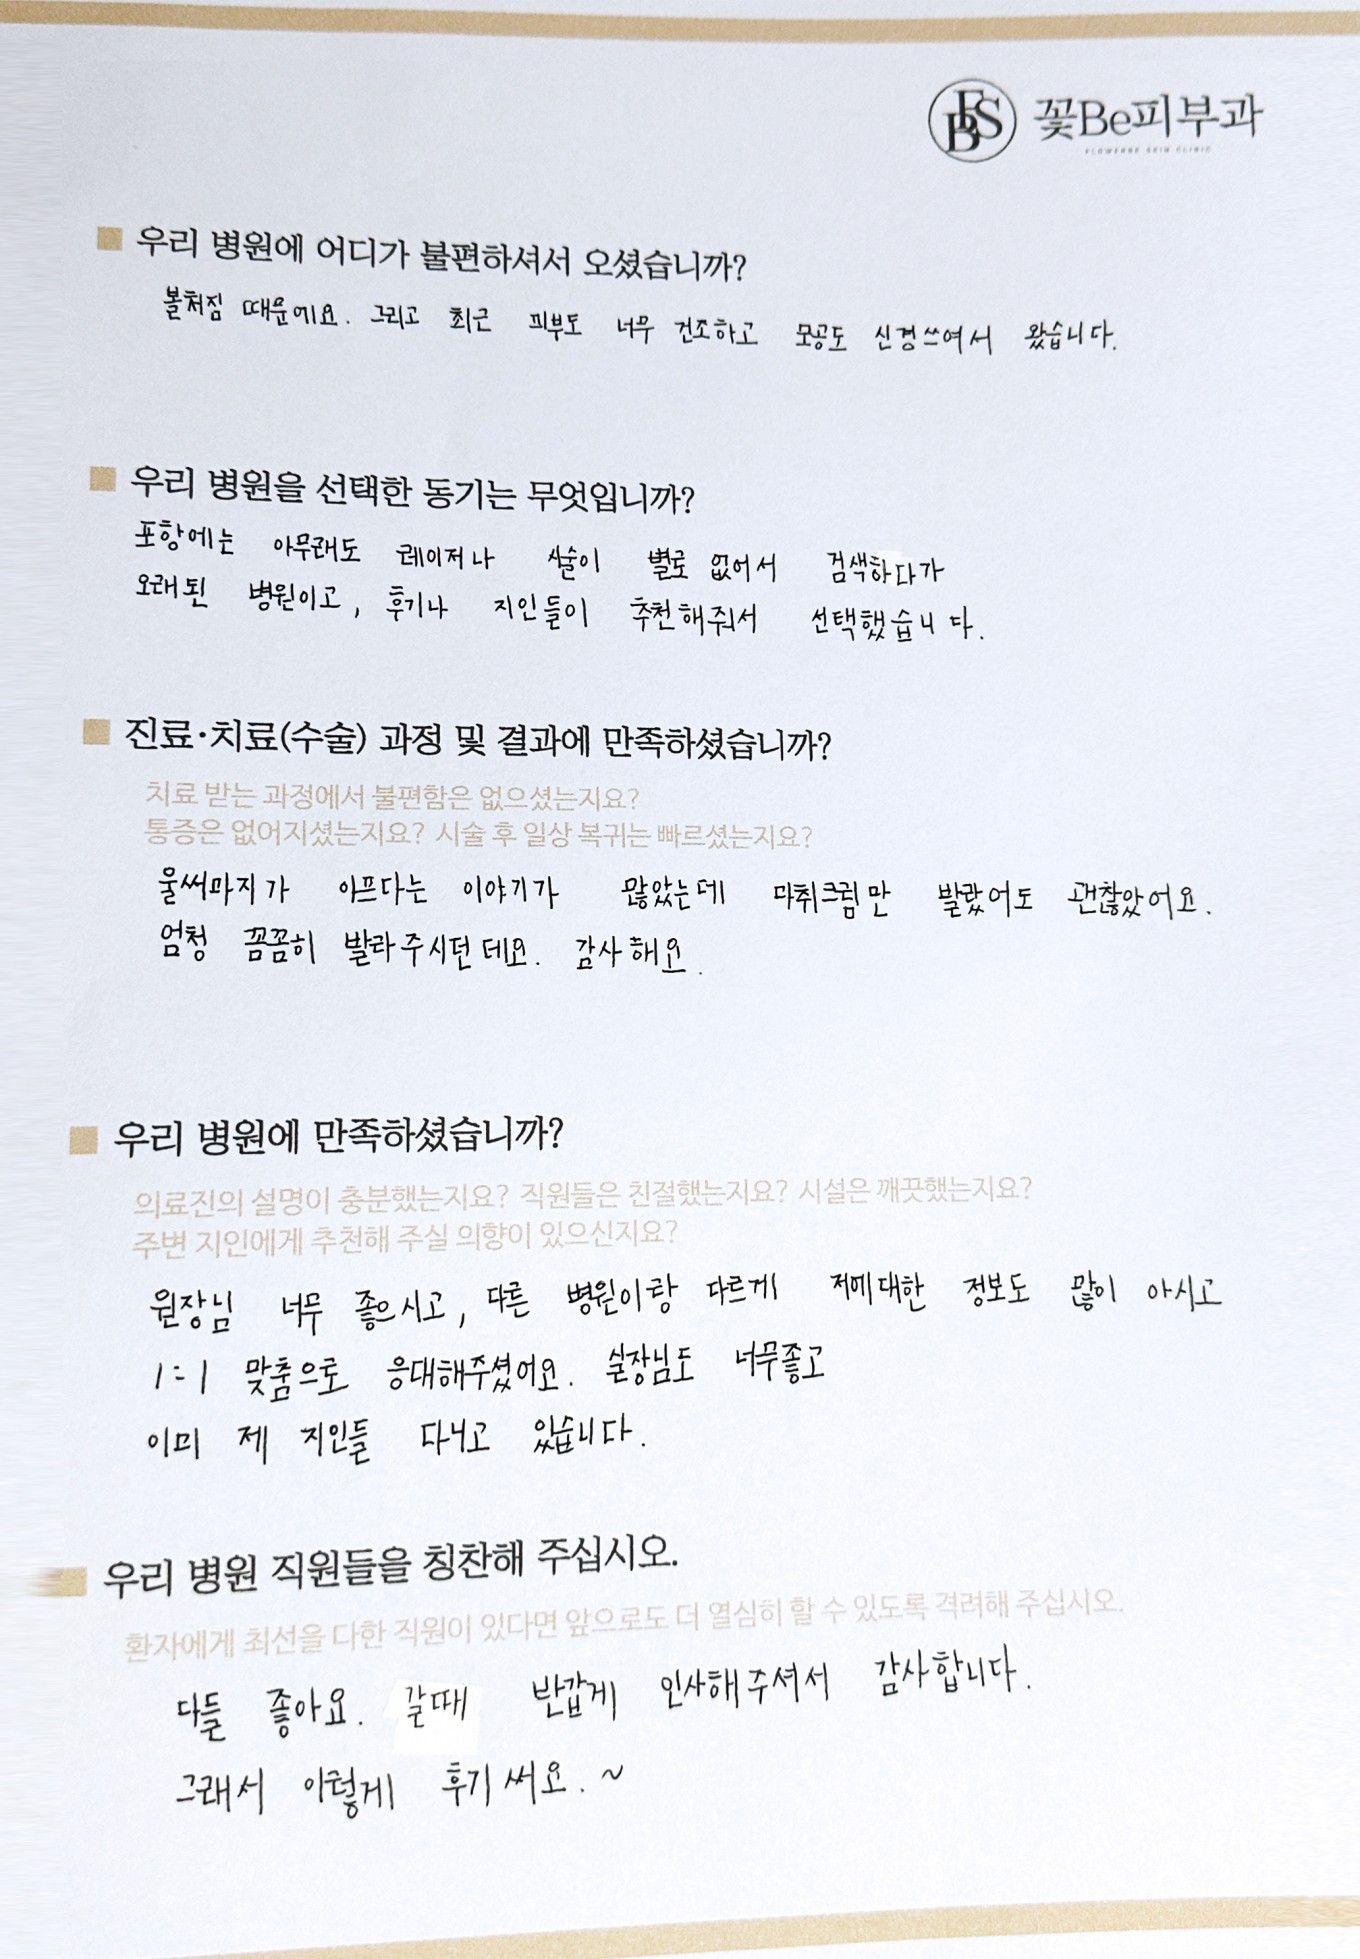 FBS 꽃Be피부과
FLOWERBE SKIN CLINIC
우리 병원에 어디가 불편하셔서 오셨습니까?
볼처짐 때문에요. 그리고 최근 피부도 너무 건조하고 모공도 신경쓰여서 왔습니다.
우리 병원을 선택한 동기는 무엇입니까?
포항에는 아무래도 레이저나 시술이 별로 없어서 검색하다가
오래된 병원이고, 후기나 지인들이 추천해줘서 선택했습니다.
진료·치료(수술) 과정 및 결과에 만족하셨습니까?
치료 받는 과정에서 불편함은 없으셨는지요?
통증은 없어지셨는지요? 시술 후 일상 복귀는 빠르셨는지요?
울써마지가 아프다는 이야기가 많았는데 마취크림만 발랐어도 괜찮았어요.
엄청 꼼꼼히 발라주시던데요. 감사해요.
우리 병원에 만족하셨습니까?
의료진의 설명이 충분했는지요? 직원들은 친절했는지요? 시설은 깨끗했는지요?
주변 지인에게 추천해 주실 의향이 있으신지요?
원장님 너무 좋으시고, 다른 병원이랑 다르게 저에대한 정보도 많이 아시고
1:1 맞춤으로 응대해주셨어요. 실장님도 너무좋고
이미 제 지인들 다니고 있습니다.
우리 병원 직원들을 칭찬해 주십시오.
환자에게 최선을 다한 직원이 있다면 앞으로도 더 열심히 할 수 있도록 격려해 주십시오.
다들 좋아요. 갈때 반갑게 인사해주셔서 감사합니다.
그래서 이렇게 후기써요.~